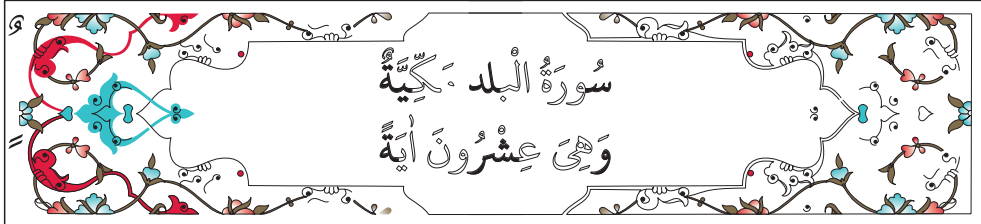 سُورَةُ الْبلد مَكِّيَّةٌ
وَهِىَ عِشْرُونَ اٰيَةً